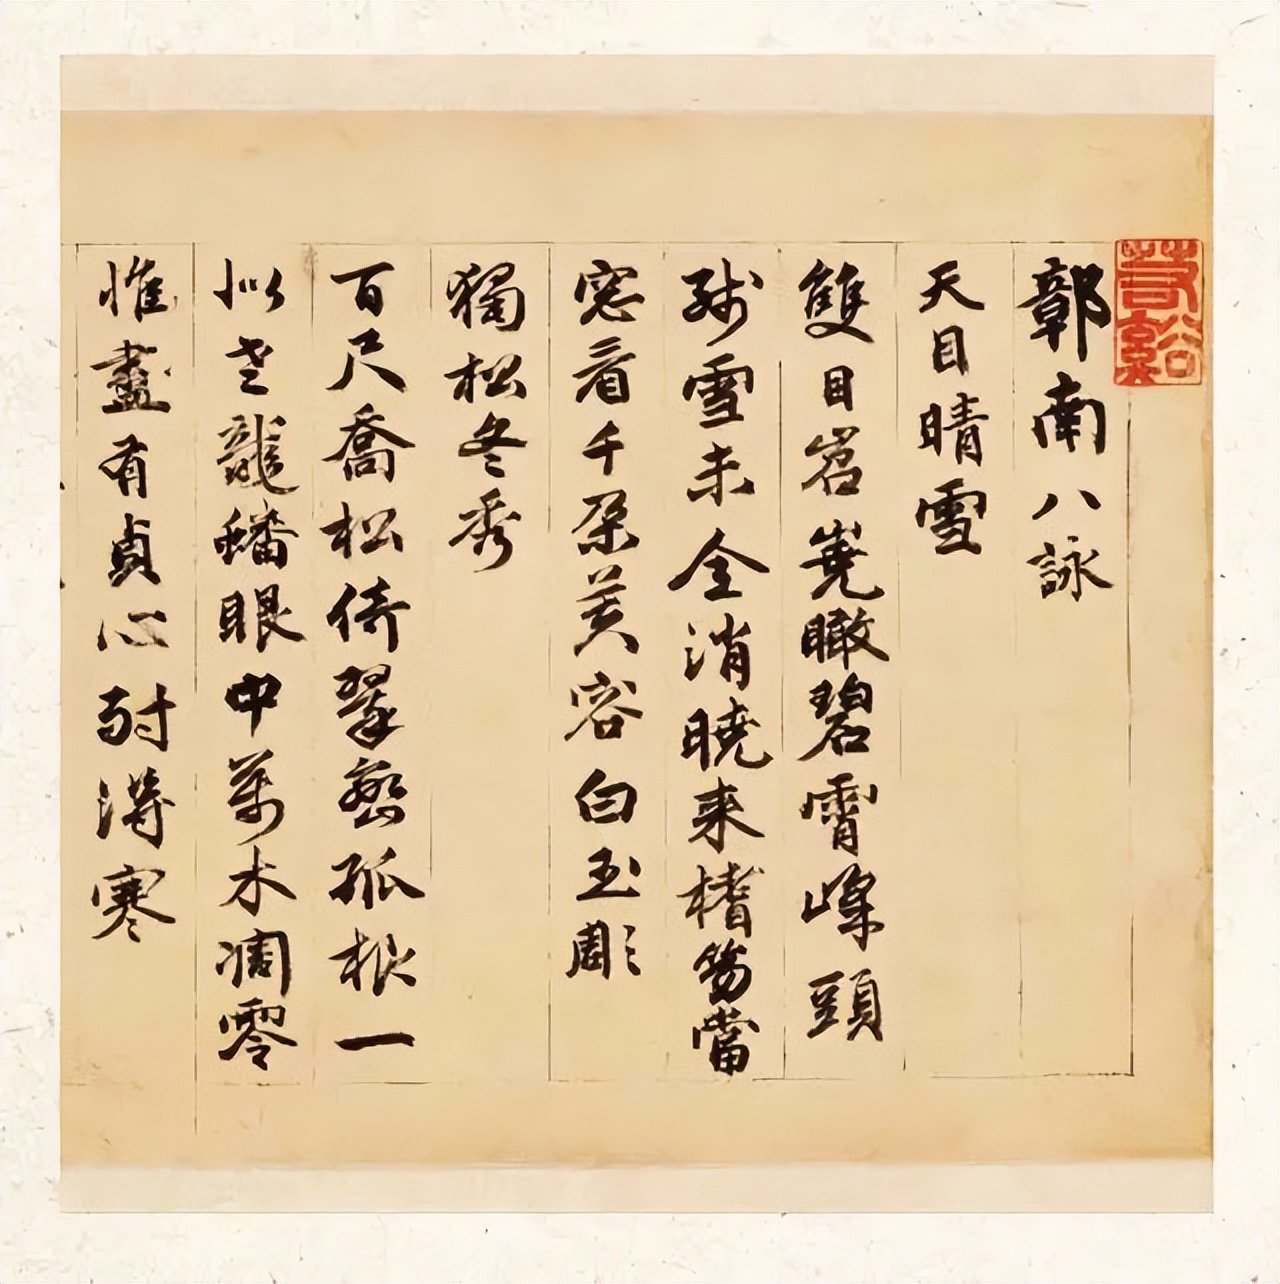 苕谿
鄣南八詠
天目晴雪
雙目岧嶤瞰碧霄峰頭
殘雪未全消曉来榰笏當
窓看千朶芙容白玉彫
獨松冬秀
百尺喬松倚翠巒孤根一
似老龍蟠眼中萬木凋零
惟盡有貞心耐得寒